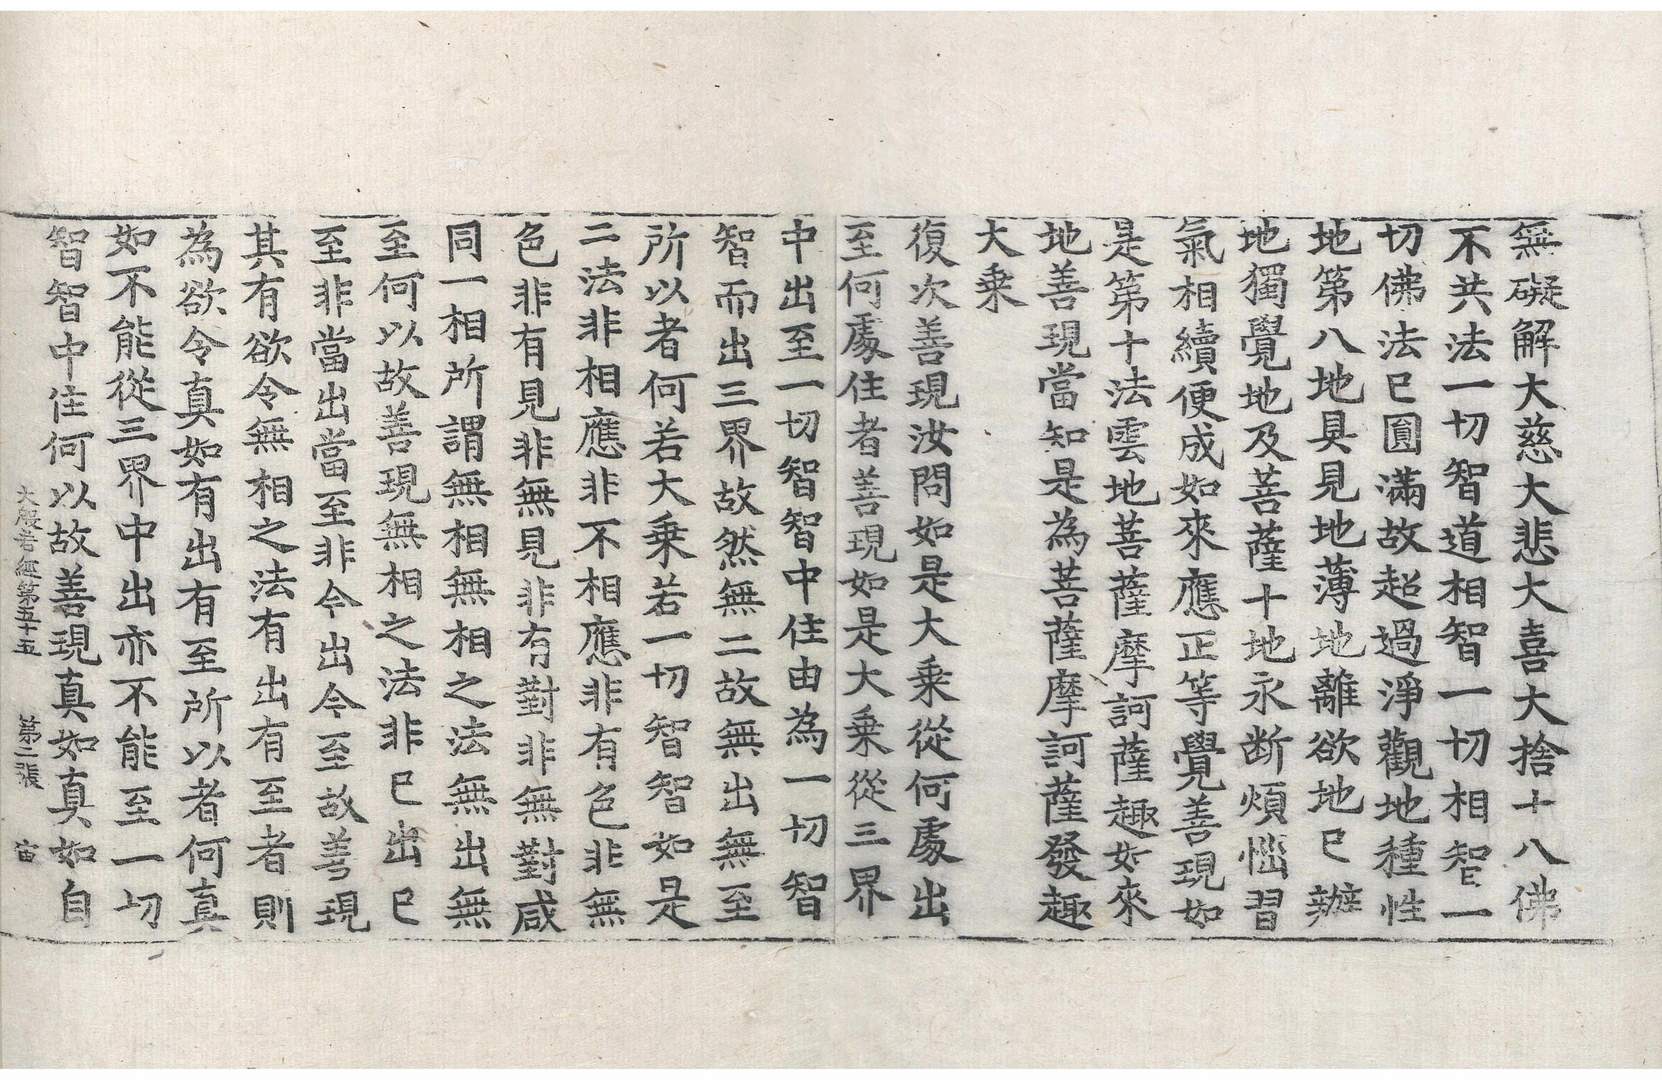 無礙解大慈大悲大喜大捨十八佛
不共法一切智道相智一切相智一
切佛法已圓滿故超過淨觀地種性
地第八地具見地薄地離欲地已辦
地獨覺地及菩薩十地永断煩惱習
氣相續便成如來應正等覺善現如
是第十法雲地菩薩摩訶薩趣如來
地善現當知是為菩薩摩訶薩發趣
大乗
復次善現汝問如是大乗從何處出
至何處住者善現如是大乗從三界
中出至一切智智中住由為一切智
智而出三界故然無二故無出無至
所以者何若大乗若一切智智如是
二法非相應非不相應非有色非無
色非有見非無見非有對非無對咸
同一相所謂無相無相之法無出無
至何以故善現無相之法非已出已
至非當出當至非今出今至故善現
其有欲令無相之法有出有至者則
為欲令真如有出有至所以者何真
如不能從三界中出亦不能至一切
智智中住何以故善現真如真如自
大般若經第五十五 第二張 宙